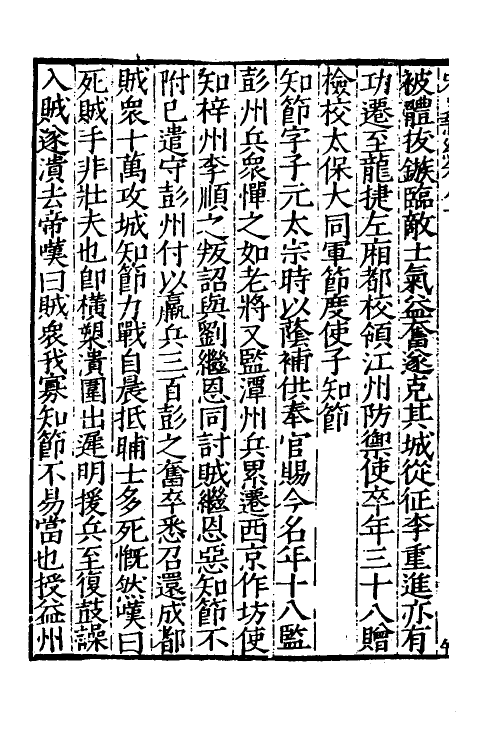 被體拔鏃臨敵士氣益奮遂克其城從征李重進亦有
功遷至龍捷左廂都校領江州防禦使卒年三十八贈
檢校太保大同軍節度使子知節
知節字子元太宗時以蔭補供奉官賜今名年十八監
彭州兵衆憚之如老將又監潭州兵累遷西京作坊使
知梓州李順之叛詔與劉繼恩同討賊繼恩惡知節不
附已遣守彭州付以羸兵三百彭之舊卒悉召還成都
賊衆十萬攻城知節力戰自晨抵晡士多死慨然嘆曰
死賊手非壯夫也卽橫槊潰圍出遲明援兵至復鼓譟
入賊遂潰去帝嘆曰賊衆我寡知節不易當也授益州